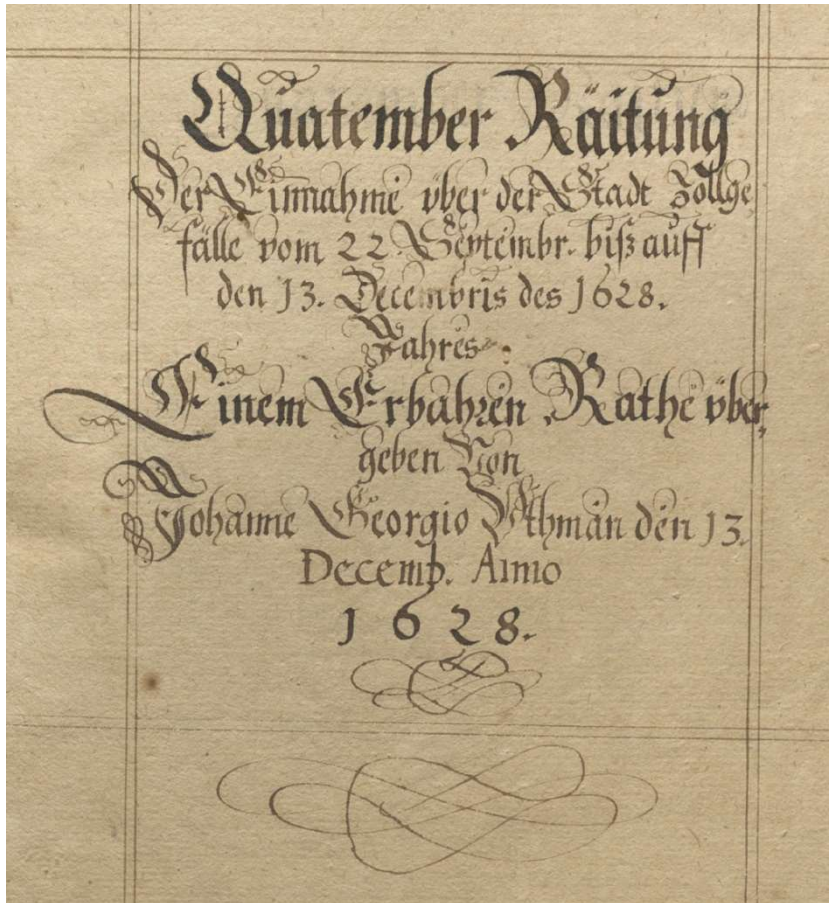 Quatember Räitung
Der Einnahme vber der Stadt Zollge
fälle vom 22. Septembr. biß auff
den 13. Decembris des 1628.
Jahres.
Einem Erbahren Rathe vber,
geben Von
Johanne Georgio Vthman den 13.
Decemb. Anno
1628.